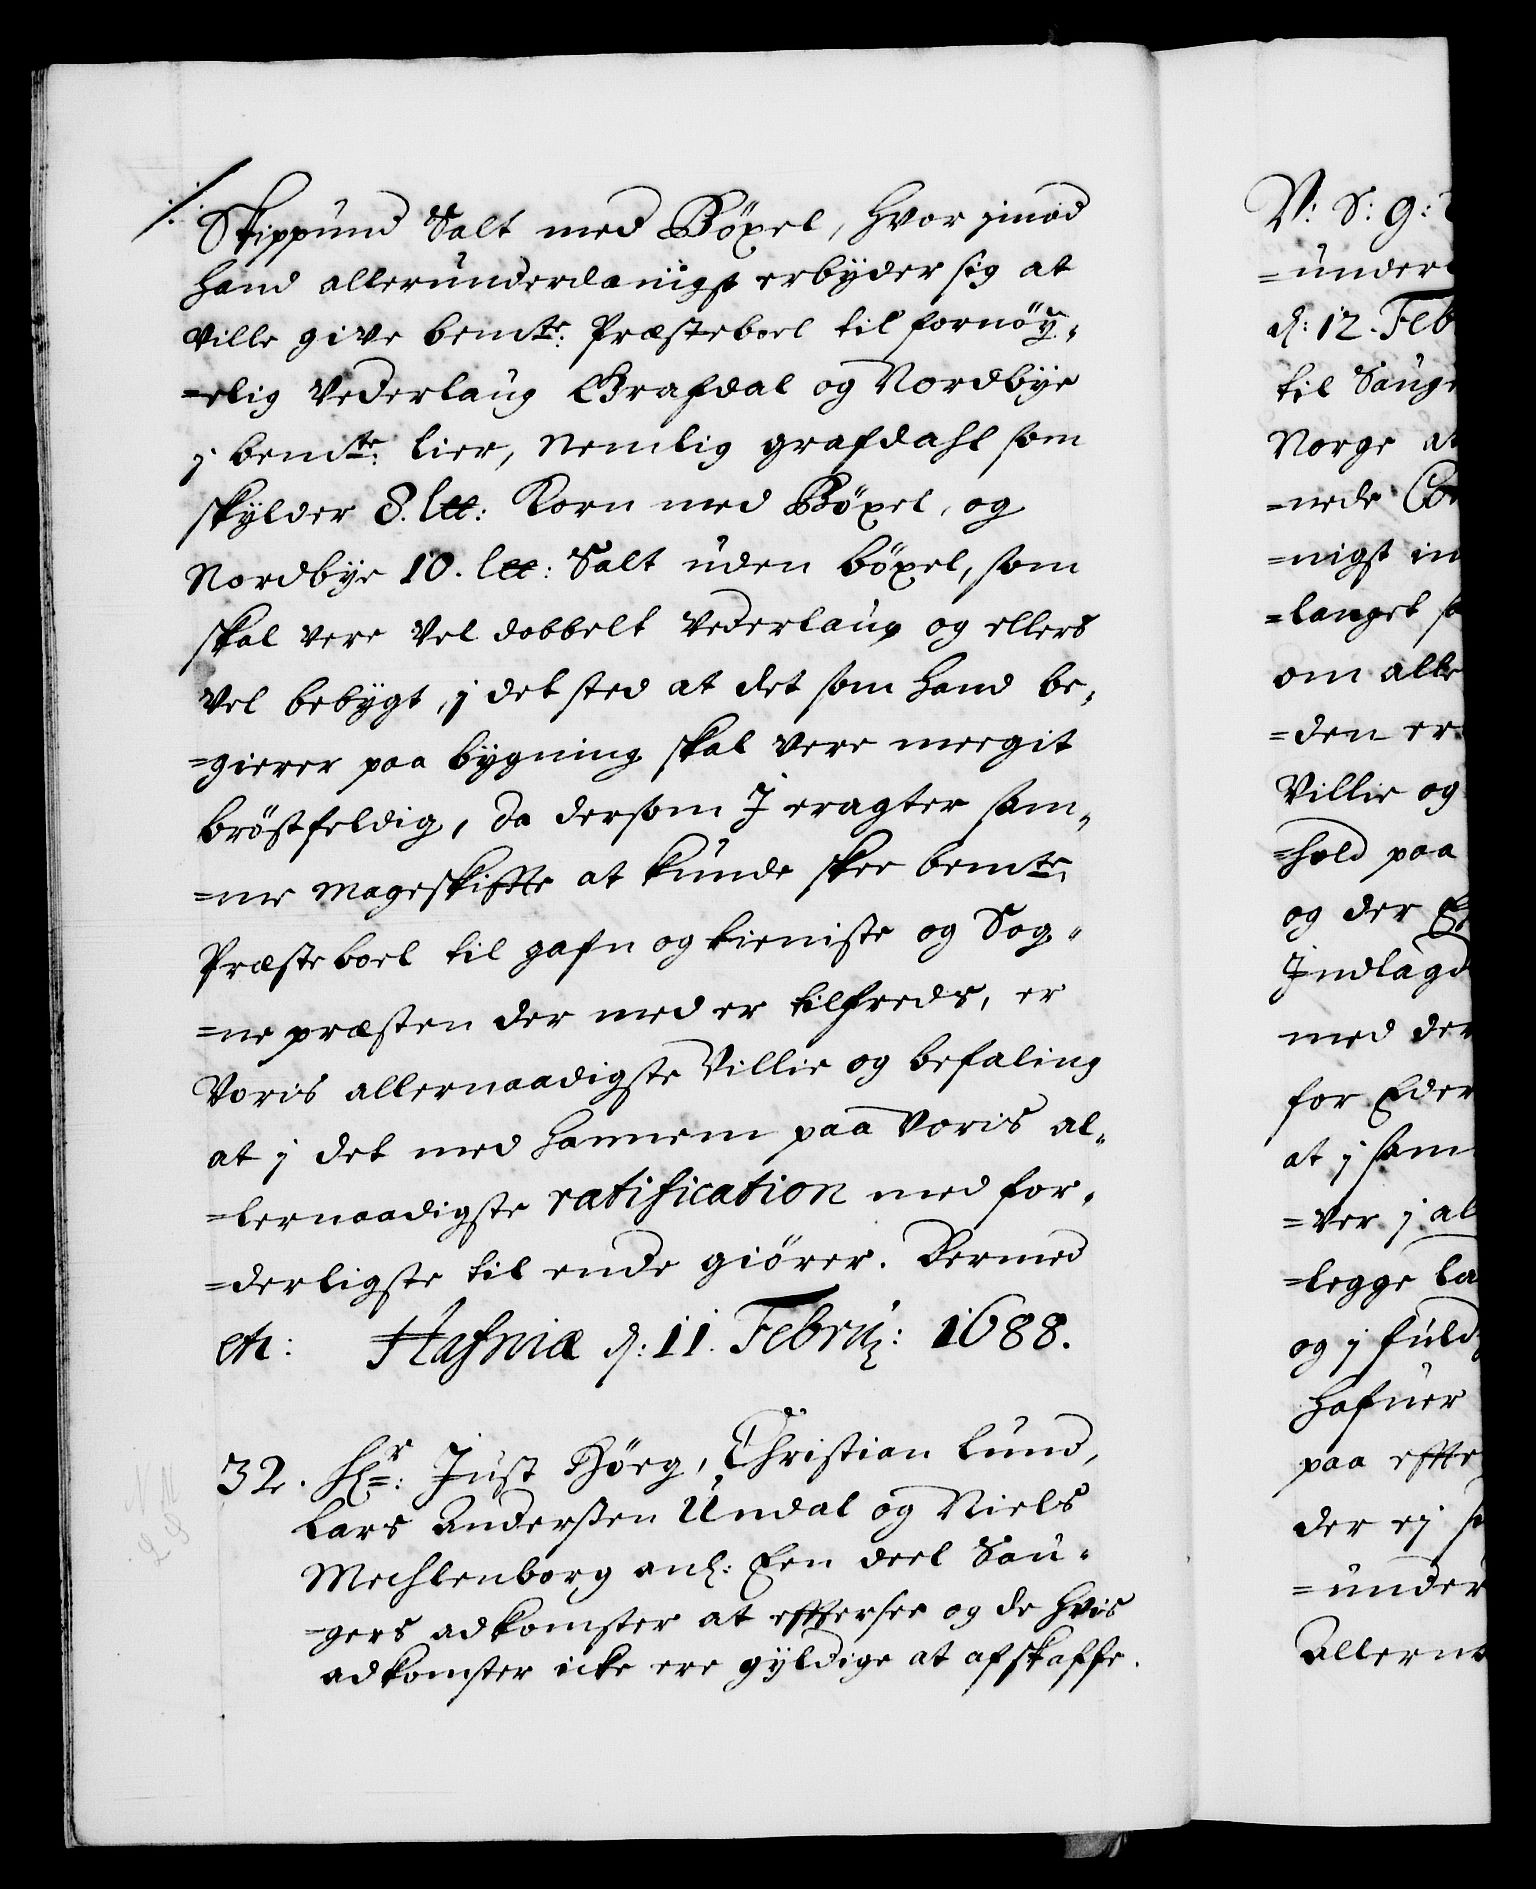 Skippund Salt med Böxel, hvor imod
hand allerunderdanigst erbyder sig at
ville give bemte: Præsteboel til fornöy-
=elig Vederlaug Grafdal og Nordbye
j bemte: lier, Nemlig grafdahl som
skylder 8. Korn med Böxel, og
Nordbye 10. Salt uden böxel, som
skal vere Vel dobbelt vederlaug og ellers
vel bebygt, j det sted at det som hand be-
=gierer paa bygning skal vere meegit
bröstfeldig, da dersom J eragter sam-
=me mageskiffte at kunde skee bemte:
Præsteboel til gafn og tieniste og Sog-
=nepræsten der med er tilfreds, er
Voris allernaadigste Villie og befaling
at j det med hannem paa Voris al-
=lernaadigste ratification med for-
=derligste til ende giörer. Dermed
etc: Hafniæ d: 11. Febru: 1688.
32. Hr: Just Höeg, Christian Lund,
Lars Andersen Undal og Niels
Mechlenborg anl: Een deel Sau-
=gers adkomster at efftersee og de hvis
adkomster icke ere gyldige at afskaffe.
V: S: G:
=under
d: 12. Feb
til Sauge
Norge at
=nede
=nigst in
=langet
om alle
=den er
Villie og
=hold paa
og der
Indlagd
med der
for Eder
at j sam
=ver j al
=legge la
og j fuld
hafuer
paa effte
der ej
=under
Allerna